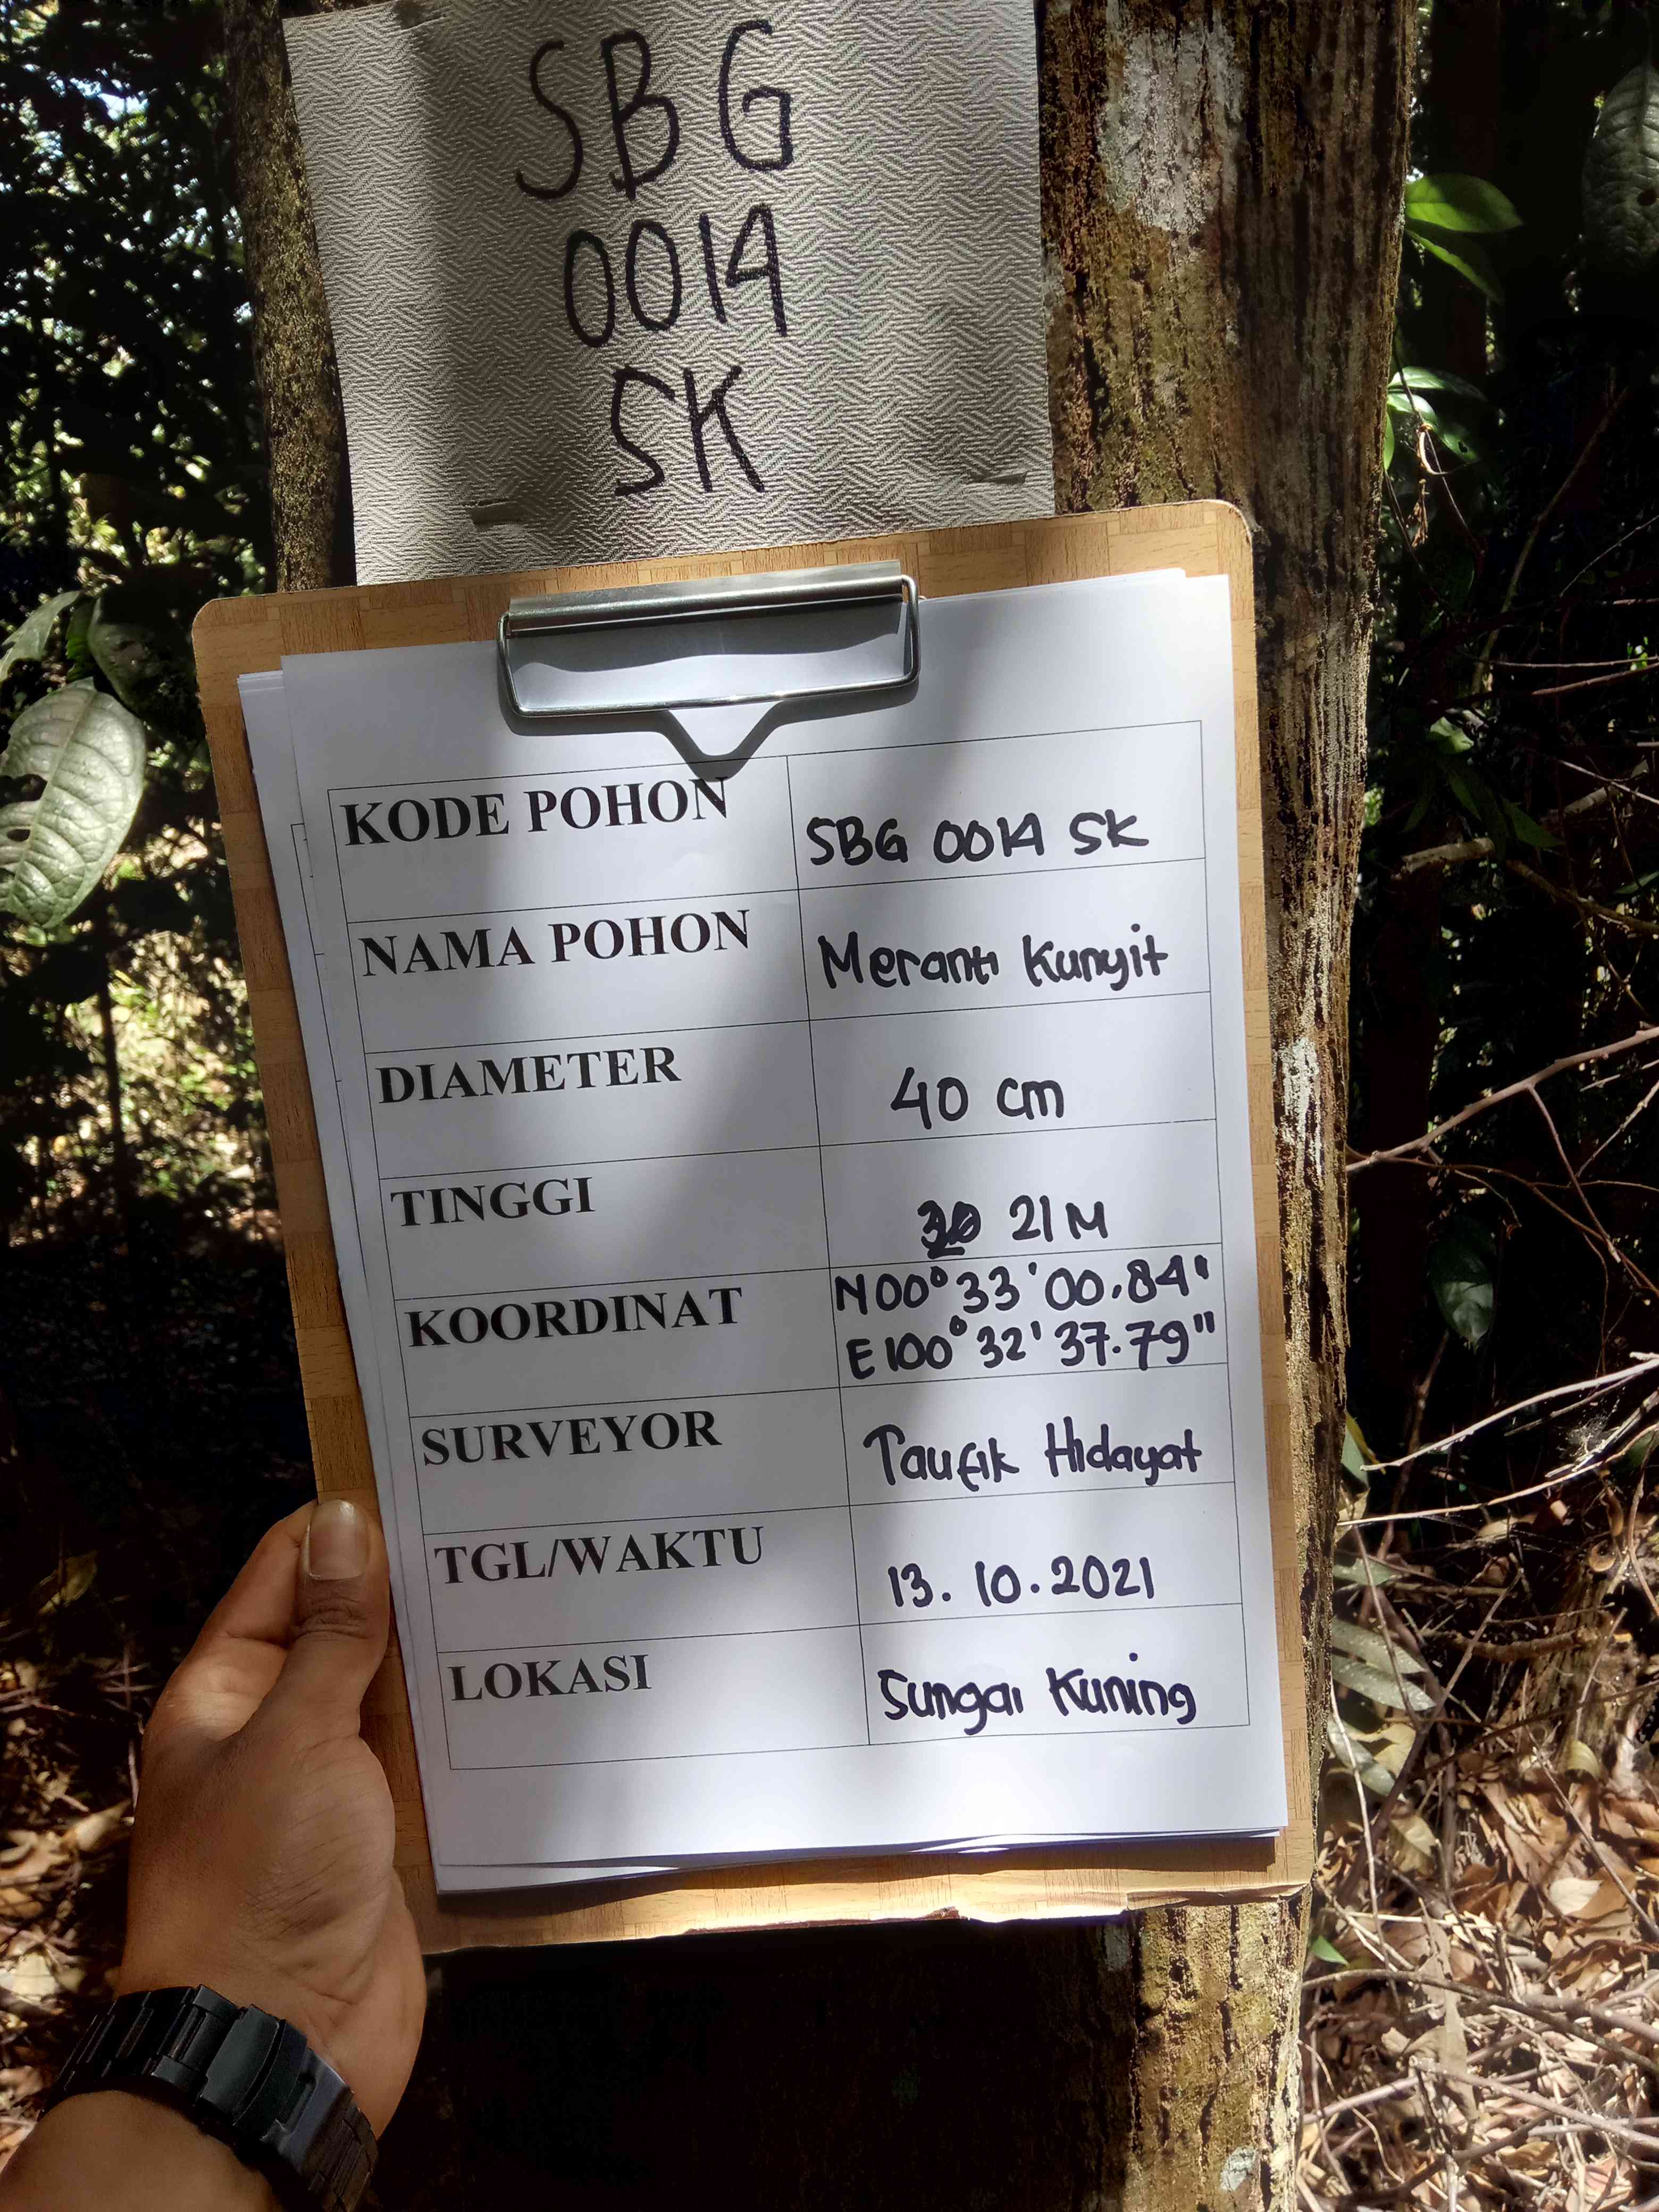 SBG
0014
SK
KODE POHON SBG 0014 SK
NAMA POHON Meranti Kunyit
DIAMETER 40 cm
TINGGI 21 M
KOORDINAT N00°33'00.84"
E100°32'37.79"
SURVEYOR Taufik Hidayat
TGL/WAKTU 13.10.2021
LOKASI Sungai Kuning